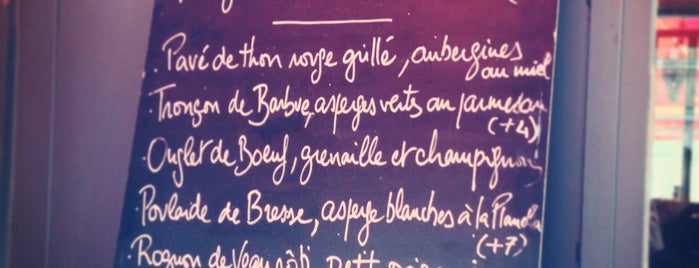 . Pavé de thon rouge grillé, aubergines
au miel
. Tronçon de Barbue, asperges vertes au parmesan
(+4)
. Onglet de Boeuf, grenaille et champignons
. Poularde de Bresse, asperge blanches à la
(+7)
. Rognon de Veau rôti, petit